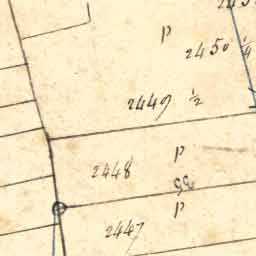 p
2450 ¼
2449 ½
p
2448
p
2447